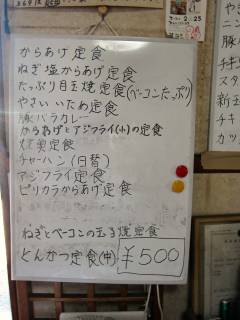 からあげ定食
ねぎ塩からあげ定食
たっぷり目玉焼定食(ベーコンたっぷり)
やさいいため定食
豚バラカレー
からあげとアジフライ(小)の定食
焼売定食
チャーハン(日替)
アジフライ定食
ピリカラからあげ定食
ねぎとベーコンの玉子焼定食
とんかつ定食(中) ¥500